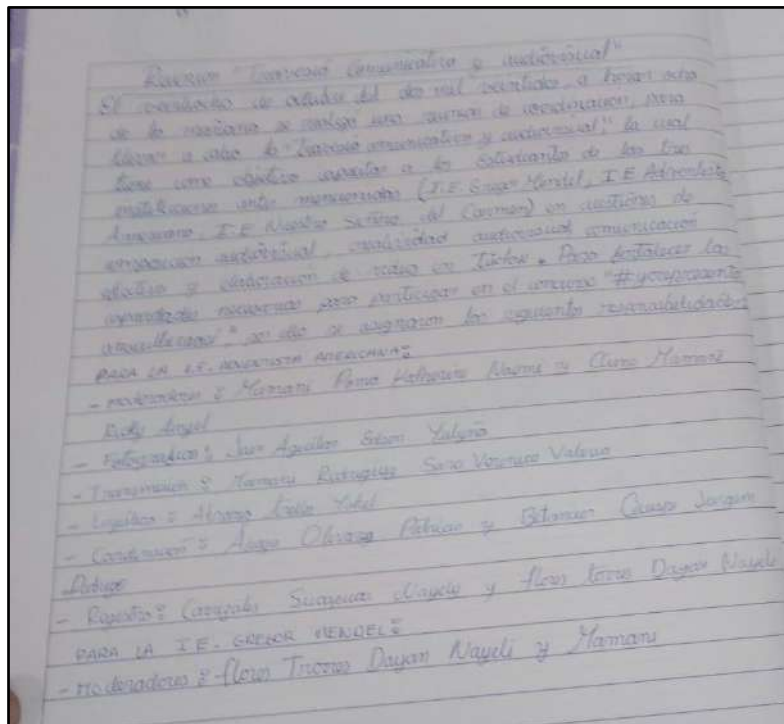 Reunion "Travesía Comunicativa y audiovisual"
El veintiocho de octubre del dos mil veintidos, a horas ocho
de la mañana se realizó una reunion de coordinación, para
llevar a cabo la "Travesía comunicativa y audiovisual," la cual
tiene como objetivo capacitar a los estudiantes de las tres
instituciones antes mencionadas (I.E. Gregor Mendel, I.E Adventista
Americana, I.E Nuestra Señora del Carmen) en cuestiones de
composición audiovisual, creatividad audiovisual comunicación
efectiva y elaboración de videos en Tiktok. Para fortalecer las
capacidades necesarias para participar en el concurso
por ello se asignaron las siguientes responsabilidades
PARA LA I.E. ADVENTISTA AMERICANA:
- moderadores : Mamani Poma Katherine Naomi y Mamani
Rudy Angel
- Fotografías : Aguilar
- Transmisión : Mamani Rodriguez Sara Veronica Valeria
- Logística : Yobel
- Coordinación : y Betancur Quispe
- Registro : Nayely y flores torres Dayan Nayeli
PARA LA I.E. GREGOR MENDEL:
- moderadores : flores Dayan Nayeli y Mamani